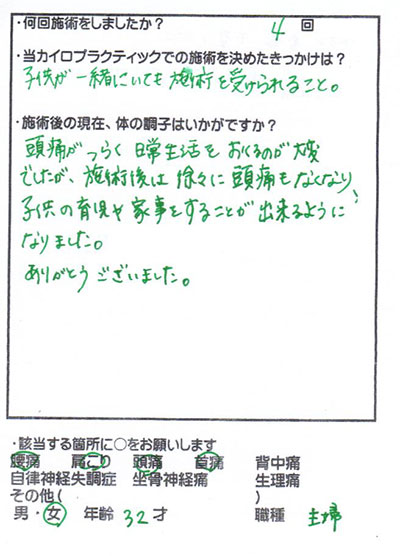 ・何回施術をしましたか？
4 回
・当カイロプラクティックでの施術を決めたきっかけは？
子供が一緒にいても施術を受けられること。
・施術後の現在、体の調子はいかがですか？
頭痛がつらく日常生活をおくるのが大変
でしたが、施術後は徐々に頭痛もなくなり、
子供の育児や家事をすることが出来るように
なりました。
ありがとうございました。
・該当する箇所に○をお願いします
腰痛 肩こり 頭痛 首痛 背中痛
自律神経失調症 坐骨神経痛 生理痛
その他( )
男・女 年齢 32 才 職種 主婦